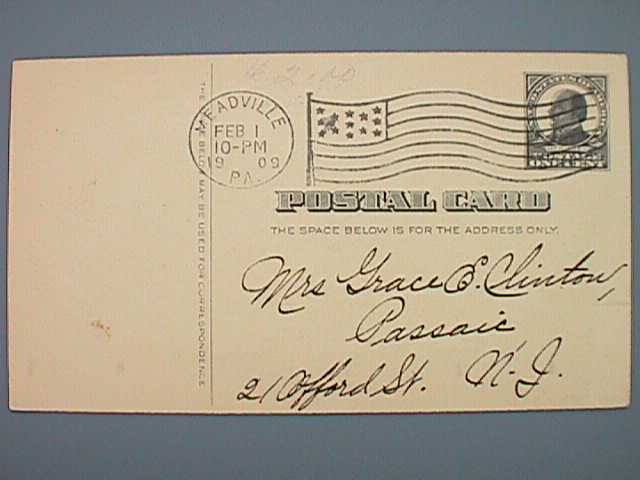 £2.00
MEADVILLE
FEB 1
10-PM
19 09
PA.
POSTAL CARD
THE SPACE BELOW IS FOR THE ADDRESS ONLY.
Mrs Grace E. Clinton,
Passaic
21 Offord St. N.J.
THE BELOW MAY BE USED FOR CORRESPONDENCE